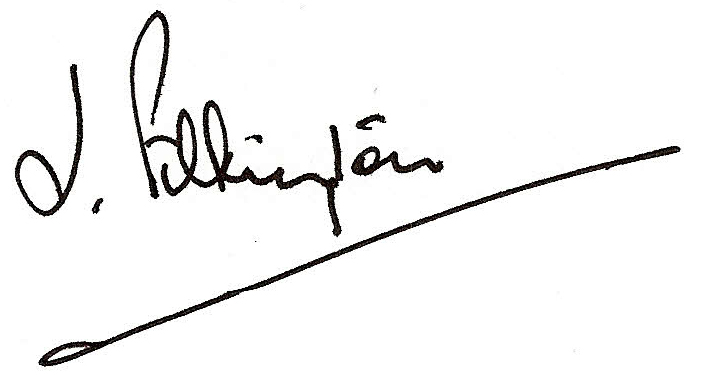 J. Pilkington